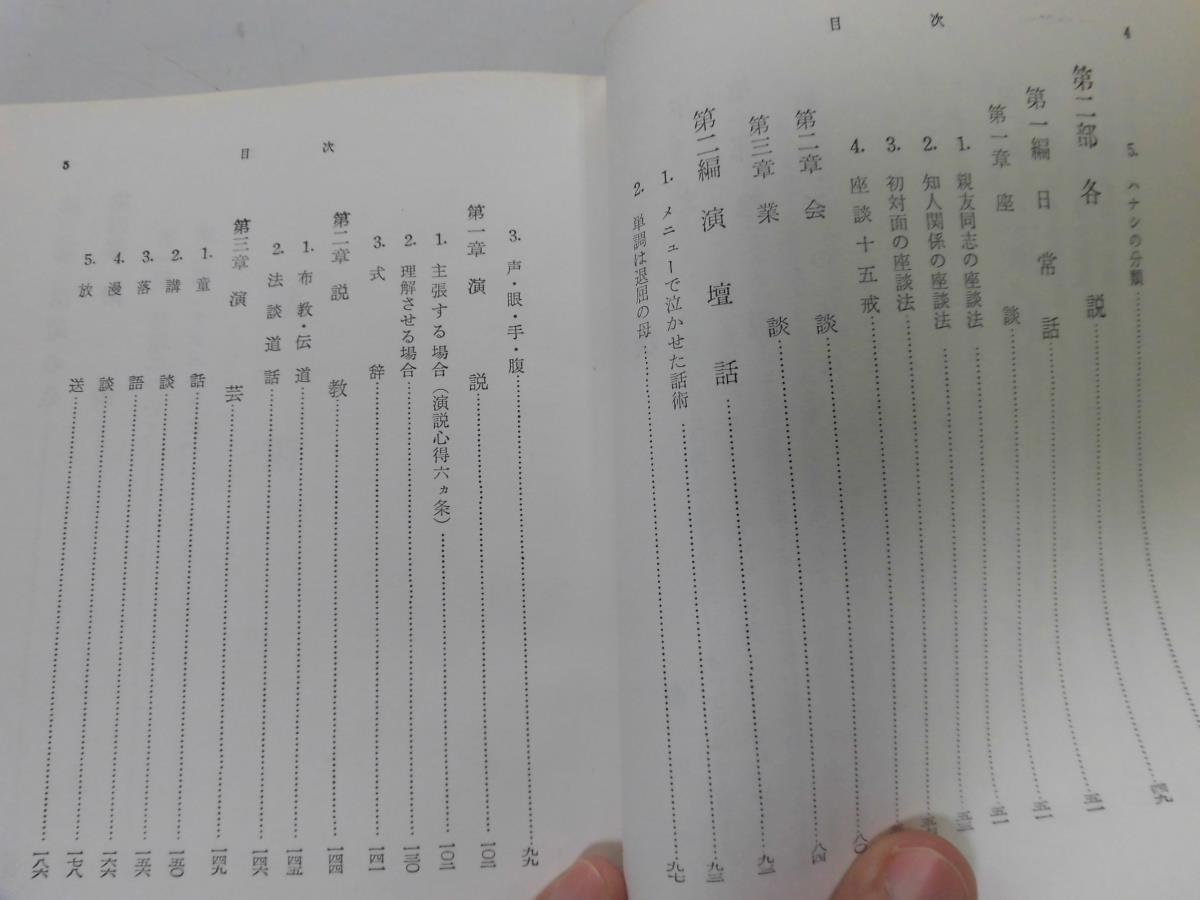 目次
4
5. ハナシの分類……四九
第二部 各説……五一
第一編 日常話……五一
第一章 座談……五一
1. 親友同志の座談法……五三
2. 知人関係の座談法……
3. 初対面の座談法……
4. 座談十五戒……八〇
第二章 会談……八四
第三章 業談……
第二編 演壇話……九三
1. メニューで泣かせた話術……
2. 単調は退屈の母……九七
目次
5
3. 声・眼・手・腹……九九
第一章 演説……一〇二
1. 主張する場合(演説心得六ヵ条)……一〇二
2. 理解させる場合……一三〇
3. 式辞……一四一
第二章 説教……一四四
1. 布教・伝道……一四五
2. 法談道話……一四六
第三章 演芸……一四九
1. 童話……一五〇
2. 講談……一五六
3. 落語……一六六
4. 漫談……一七八
5. 放送……一八六